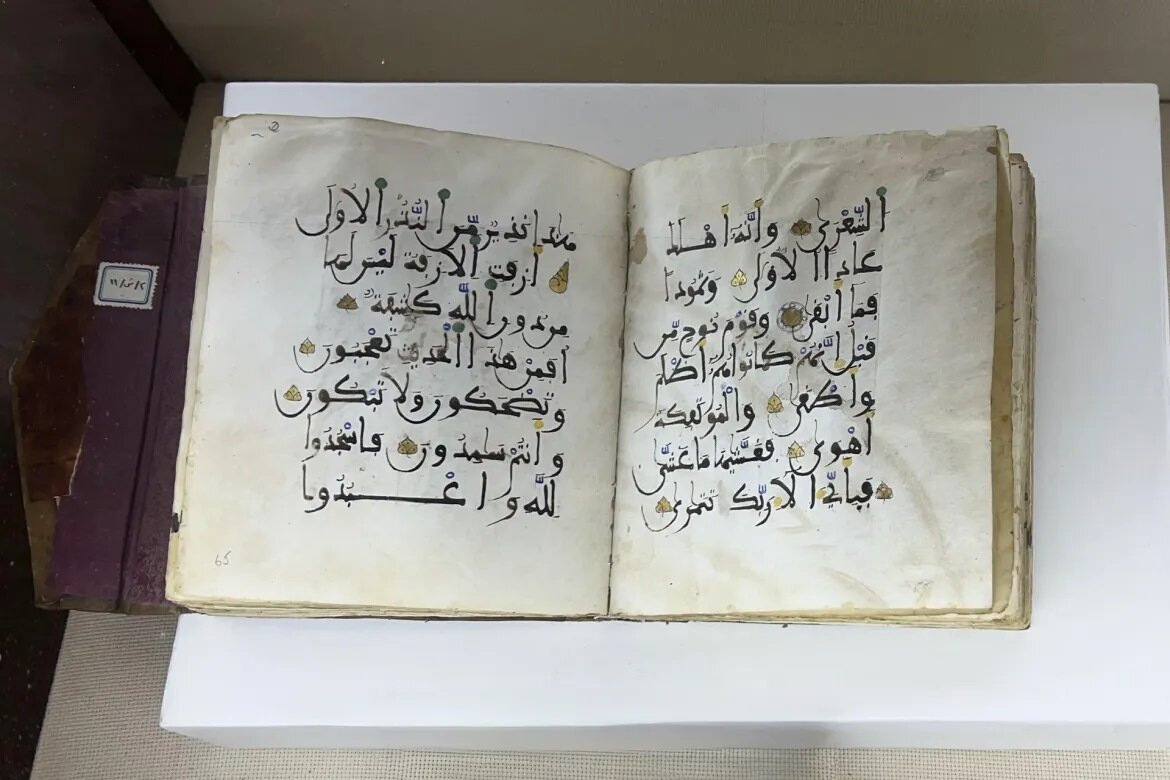 الشِّعْرَى وَأَنَّهُ أَهْلَكَ
عَادًا الاُولَى وَثَمُودَا
فَمَا أَبْقَى وَقَوْمَ نُوحٍ مِّن
قَبْلُ إِنَّهُمْ كَانُوا هُمْ أَظْلَمَ
وَأَطْغَى وَالْمُؤْتَفِكَةَ
أَهْوَى فَغَشَّيهَا مَا غَشَّى
فَبِأَيِّ آلَاءِ رَبِّكَ تَتَمَارَى
هَذَا نَذِيرٌ مِّنَ النُّذُرِ الاُولَى
أَزِفَتِ الاَزِفَةُ لَيْسَ لَهَا
مِن دُونِ اللَّهِ كَاشِفَةٌ
أَفَمِنْ هَذَا الْحَدِيثِ تَعْجَبُونَ
وَتَضْحَكُونَ وَلَا تَبْكُونَ
وَأَنتُمْ سَامِدُونَ فَاسْجُدُوا
لِلَّهِ وَاعْبُدُوا
65